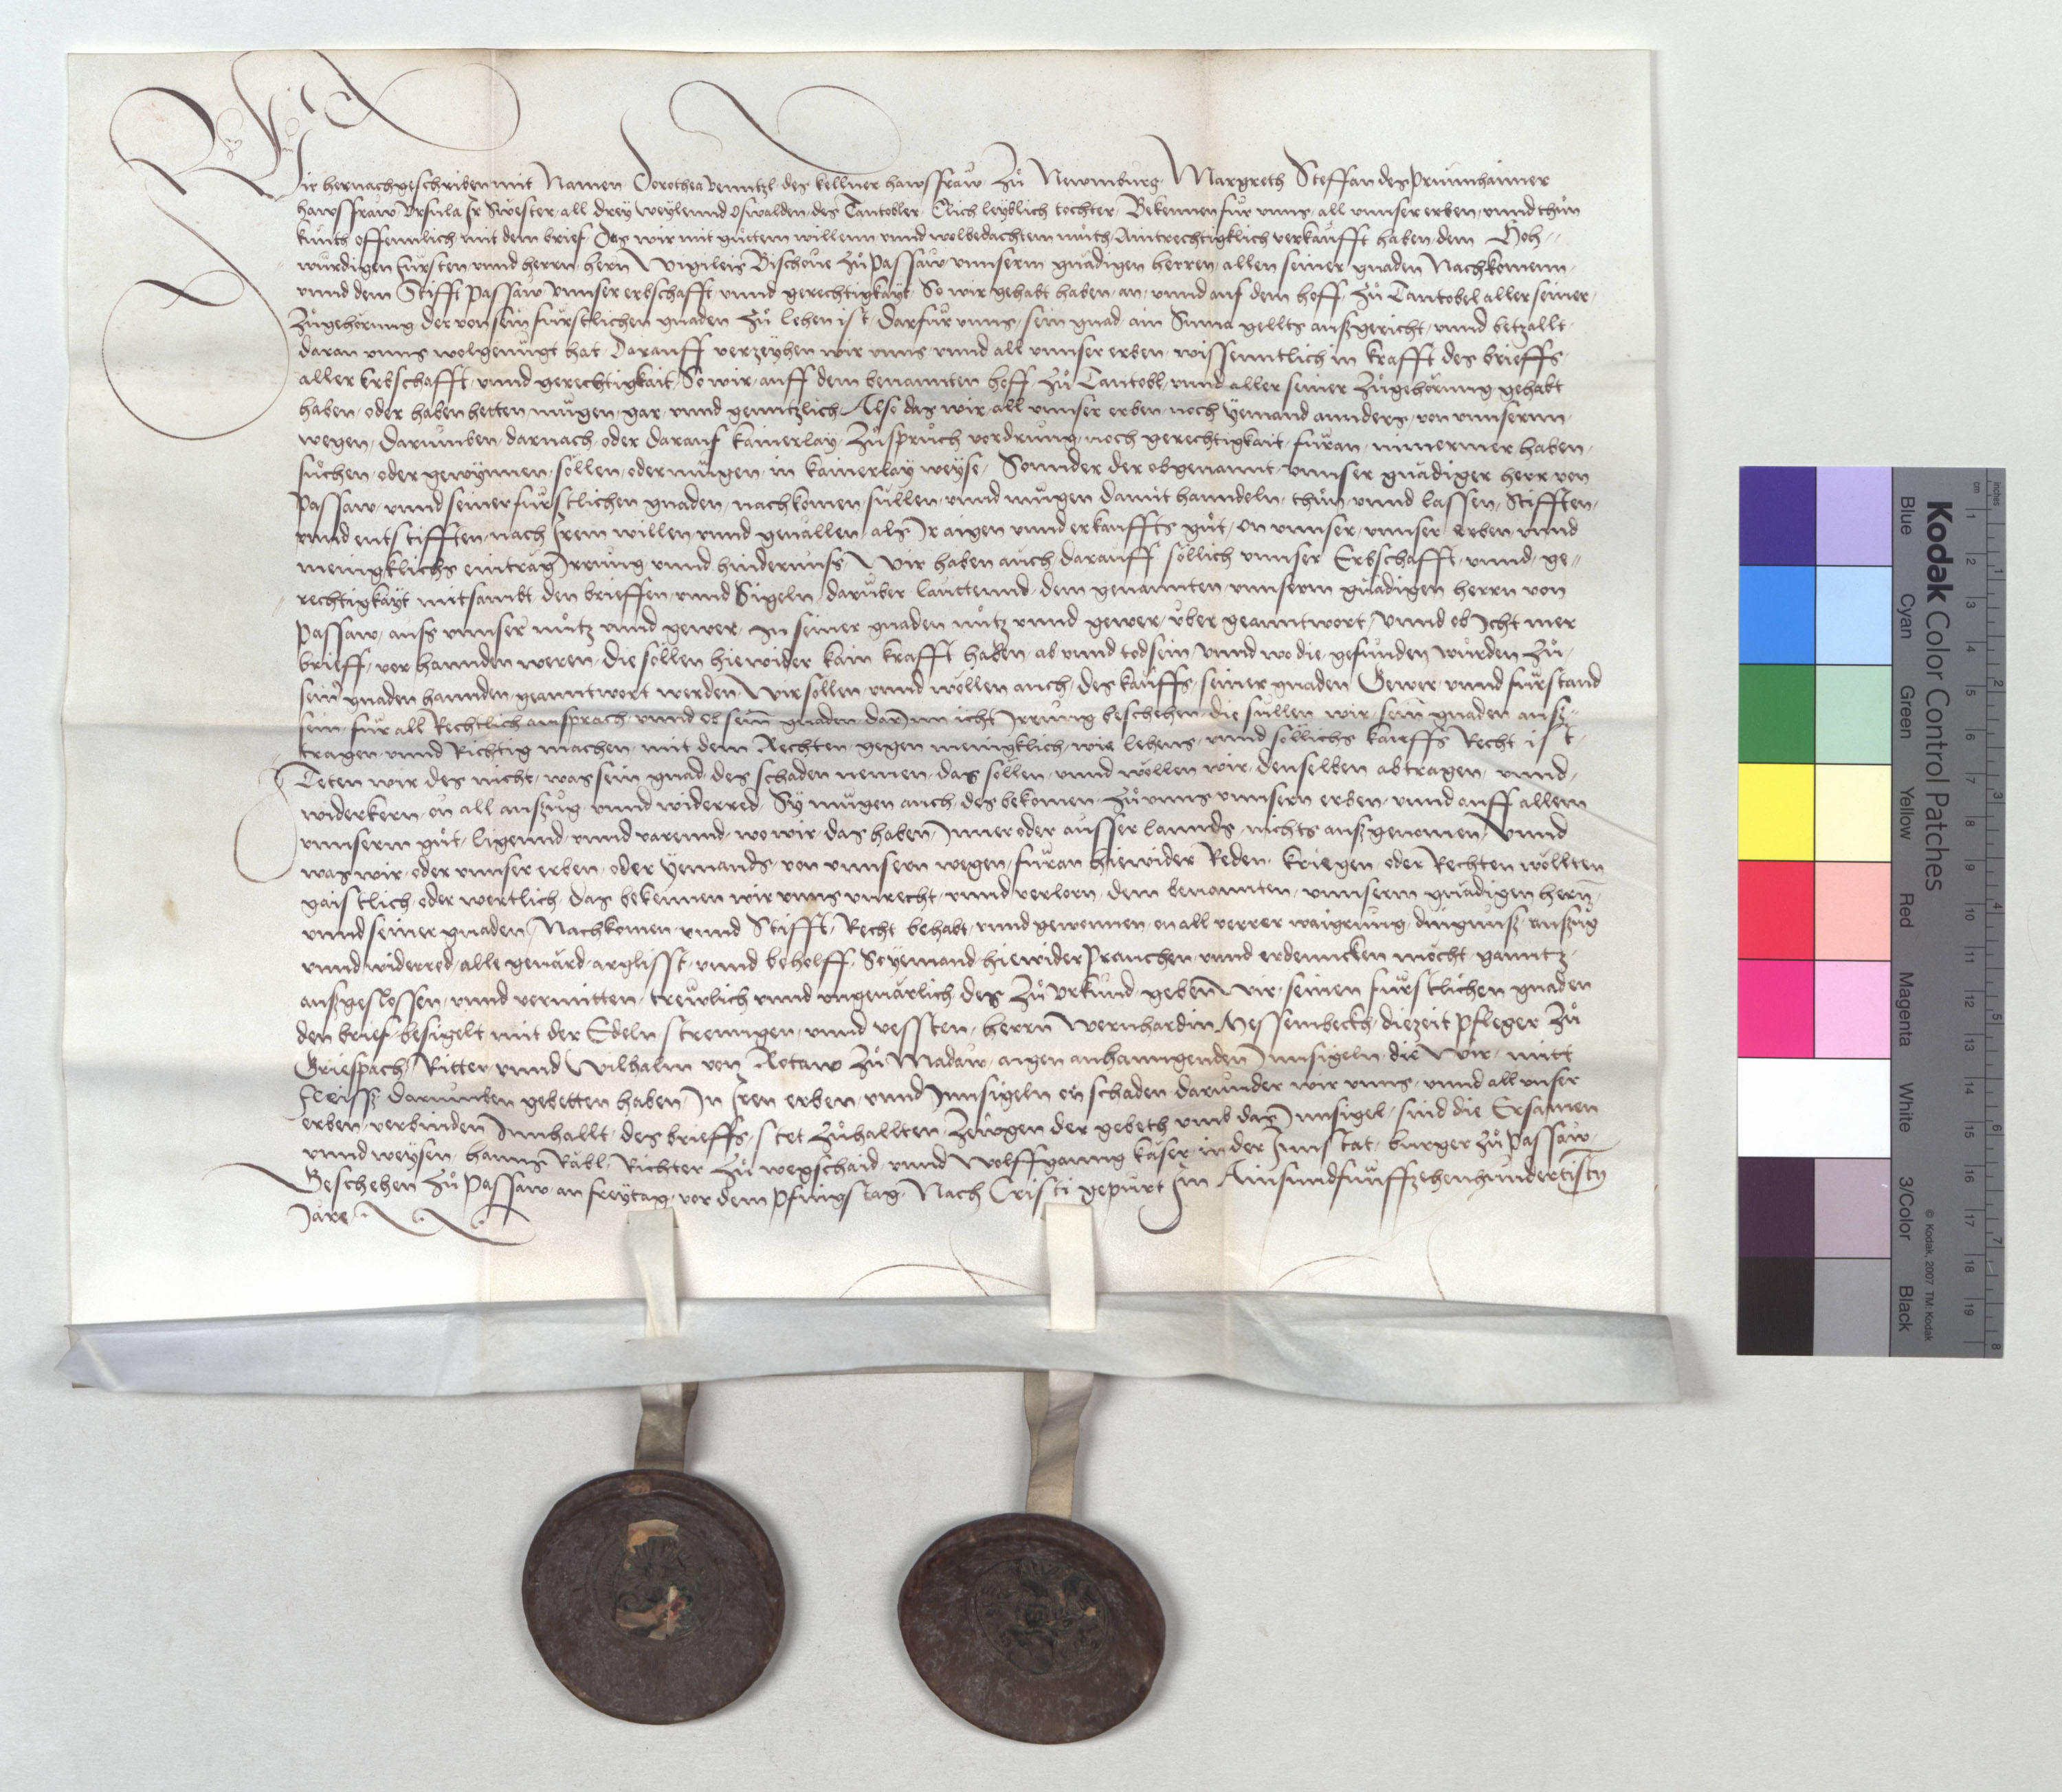 Wir hernachgeschriben mit Namen Dorothea venntzl des kellner hawsfraw Zů Newnburg Margreth Steffan des prunnhaimer
hawsfraw Vrsula Ir Swester all drey weylennd Oswalden des Tantobler Elich leyblich tochter Bekennen für vnns all vnnser erben vnnd thůn
kunth offennlich mit dem brief Das wir mit gůttem willenn vnnd wolbedachtem můth Aintrechtigklich verkaufft haben dem Hoh=
wurdigen fürsten vnnd herrn hern Wigileis Bischoue Zů Passaw vnnserm gnädigen herren allen seiner gnaden Nachkomenn
vnnd dem Stifft Passaw Vnnser erbschafft vnnd gerechtigkayt So wir gehabt haben an vnnd auf dem hoff Zů Tantobel aller seiner
Zůgehörung der von sein fürstlichen gnaden Zů lehen ist Darfür vnns sein gnad ain Suma gellts außgericht vnnd betzallt
daran vnns wolgenůgt hat Darauff verzeyhen wir vnns vnnd all vnnser erben wissenntlich in krafft des brieffs
aller Erbschafft vnnd gerechtigkait So wir auff dem benannten hoff Zů Tantobl vnnd aller seiner Zůgehörung gehabt
haben oder haben hetten mügen gar vnnd genntzlich Also das wir all vnnser erben noch yemand annders von vnnsernn
wegen darumben darnach oder darauf kainerlay Zůsprůch vordrung noch gerechtigkait füran nimermer haben
sůchen oder gewynnen söllen oder mügen in kainerlay weyse Sonnder der obgenannt vnnser gnädiger herr von
Passaw vnnd seiner fürstlichen gnaden nachkomen süllen vnnd mügen damit hanndeln thůn vnnd lassen Stifften
vnnd entstifften nach Irem willen vnnd geuallen als Ir aigen vnnd erkauffts gůt on vnnser vnnser erben vnnd
menigklichs eintrag Irrung vnnd hindernuss Wir haben auch darauff söllich vnnser Erbschafft vnnd ge=
rechtigkayt mitsambt den brieffen vnnd Sigeln darüber lauttennd dem genannten vnnserm gnädigen herrn von
Passaw auss vnnser nůtz vnnd gewer In seiner gnaden nůtz vnnd gewer über geanntwort Vnnd ob Icht mer
brieff vor hannden weren die sollen hiewider kain krafft haben ab vnnd tod sein vnnd wo die gefunden würden Zů
sein̄ gnaden hannden geanntwort werden Wir sollen vnnd wöllen auch des kauffs seiner gnaden Gewer vnnd fürstand
sein für all Rechtlich ansprach vnnd ob sein̄ gnaden darInn icht Irrung beschehen die süllen wir sein̄ gnaden auß=
tragen vnnd Richtig machen mit dem Rechten gegen menigklich wie lehens vnnd söllichs kauffs Recht ist
Teten wir des nicht was sein gnad des schaden nemen das söllen vnnd wöllen wir denselben abtragen vnnd
widerkern on all außzug vnnd widerred Sy mügen auch des bekomen Zů vnns vnnsern erben vnnd auff allem
vnnserm gůt ligennd vnnd varennd wo wir das haben Inner oder ausser lannds nichts außgenomen Vnnd
was wir oder vnnser erben oder yemands von vnnsern wegen füran hiewider Reden kriegen oder Rechten wöllten
gaistlich oder wertlich das bekennen wir vnns vnrecht vnnd verlorn dem benannten vnnserm gnädigen hern̄
vnnd seiner gnaden Nachkomen vnnd Stifft Recht behabt vnnd gewonnen on all verrer waigrung dingnuß außzug
vnnd widerred alle geuärd arglisst vnnd behelff So yemand hiewider Prauchen vnnd erdenncken möcht ganntz
außgeslossen vnnd vermitten trewlich vnnd vngeuärlich des Zů vrkund geben Wir seinen fürstlichen gnaden
den brief besigelt mit der Edeln strenngen vnnd vessten herrn Wernhardin Messenbeckh diezeit pfleger Zů
Griespach Ritter vnnd Wilhalm von Rotaw Zů Madaw aigen anhanngenden Innsigeln die Wir mitt
fleiß darumben gebetten haben In Iren erben vnnd Innsigeln on schaden darunder wir vnns vnnd all vnser
erben verbinden Innhallt des brieffs stet Zůhallten Zewgen der gebeth vmb das Innsigel sind die Ersamen
vnnd weysen hanns Räbl Richter Zů wegschaid vnnd Wolffganng käser in der Innstat burger Zů Passaw
Beschehen Zů Passaw an freytag vor dem pfingstag Nach Cristi gepurt Im Ainsundfunffzehenhundertistn
Jare
Kodak Color Control Patches
Blue Cyan Green Yellow Red Magenta White 3/Color Black
© Kodak, 2007 TM: Kodak
cm 1 2 3 4 5 6 7 8 9 10 11 12 13 14 15 16 17 18 19
inches 1 2 3 4 5 6 7 8